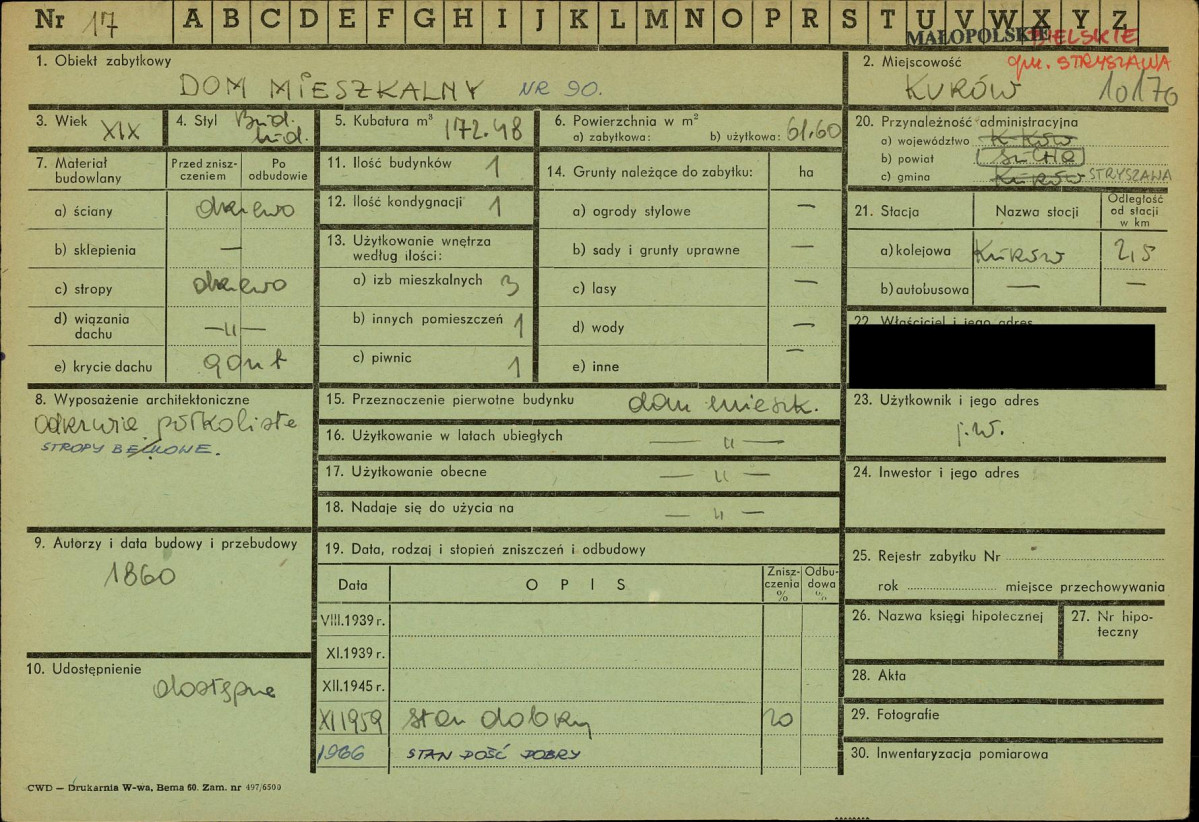 Nr 17 A B C D E F G H I J K L M N O P R S T U V W X Y Z
MAŁOPOLSKIE BIELSKIE
gm. STRYSZAWA
1. Obiekt zabytkowy
DOM MIESZKALNY NR 90.
2. Miejscowość
KURÓW 10170
3. Wiek XIX
4. Styl Bud. lud.
5. Kubatura m³ 172.48
6. Powierzchnia w m²
a) zabytkowa: b) użytkowa: 61.60
7. Materiał budowlany
Przed zniszczeniem
Po odbudowie
a) ściany drzewo
b) sklepienia —
c) stropy drzewo
d) wiązania dachu —„—
e) krycie dachu gont
8. Wyposażenie architektoniczne
odrzwia półkoliste
STROPY BELKOWE.
9. Autorzy i data budowy i przebudowy
1860
10. Udostępnienie
dostępne
11. Ilość budynków 1
12. Ilość kondygnacji 1
13. Użytkowanie wnętrza według ilości:
a) izb mieszkalnych 3
b) innych pomieszczeń 1
c) piwnic 1
14. Grunty należące do zabytku: ha
a) ogrody stylowe —
b) sady i grunty uprawne —
c) lasy —
d) wody —
e) inne —
15. Przeznaczenie pierwotne budynku dom mieszk.
16. Użytkowanie w latach ubiegłych —„—
17. Użytkowanie obecne —„—
18. Nadaje się do użycia na —„—
19. Data, rodzaj i stopień zniszczeń i odbudowy
Data OPIS Zniszczenia % Odbudowa %
VIII.1939 r.
XI.1939 r.
XII.1945 r.
XI 1959 stan dobry 20
1966 STAN DOŚĆ DOBRY
20. Przynależność administracyjna
a) województwo
b) powiat SUCHA
c) gmina Kurów STRYSZAWA
21. Stacja Nazwa stacji Odległość od stacji w km
a) kolejowa Kurów 2,5
b) autobusowa — —
22. Właściciel i jego adres
23. Użytkownik i jego adres
j.w.
24. Inwestor i jego adres
25. Rejestr zabytku Nr
rok miejsce przechowywania
26. Nazwa księgi hipotecznej
27. Nr hipoteczny
28. Akta
29. Fotografie
30. Inwentaryzacja pomiarowa
CWD — Drukarnia W-wa, Bema 60. Zam. nr 497/6500